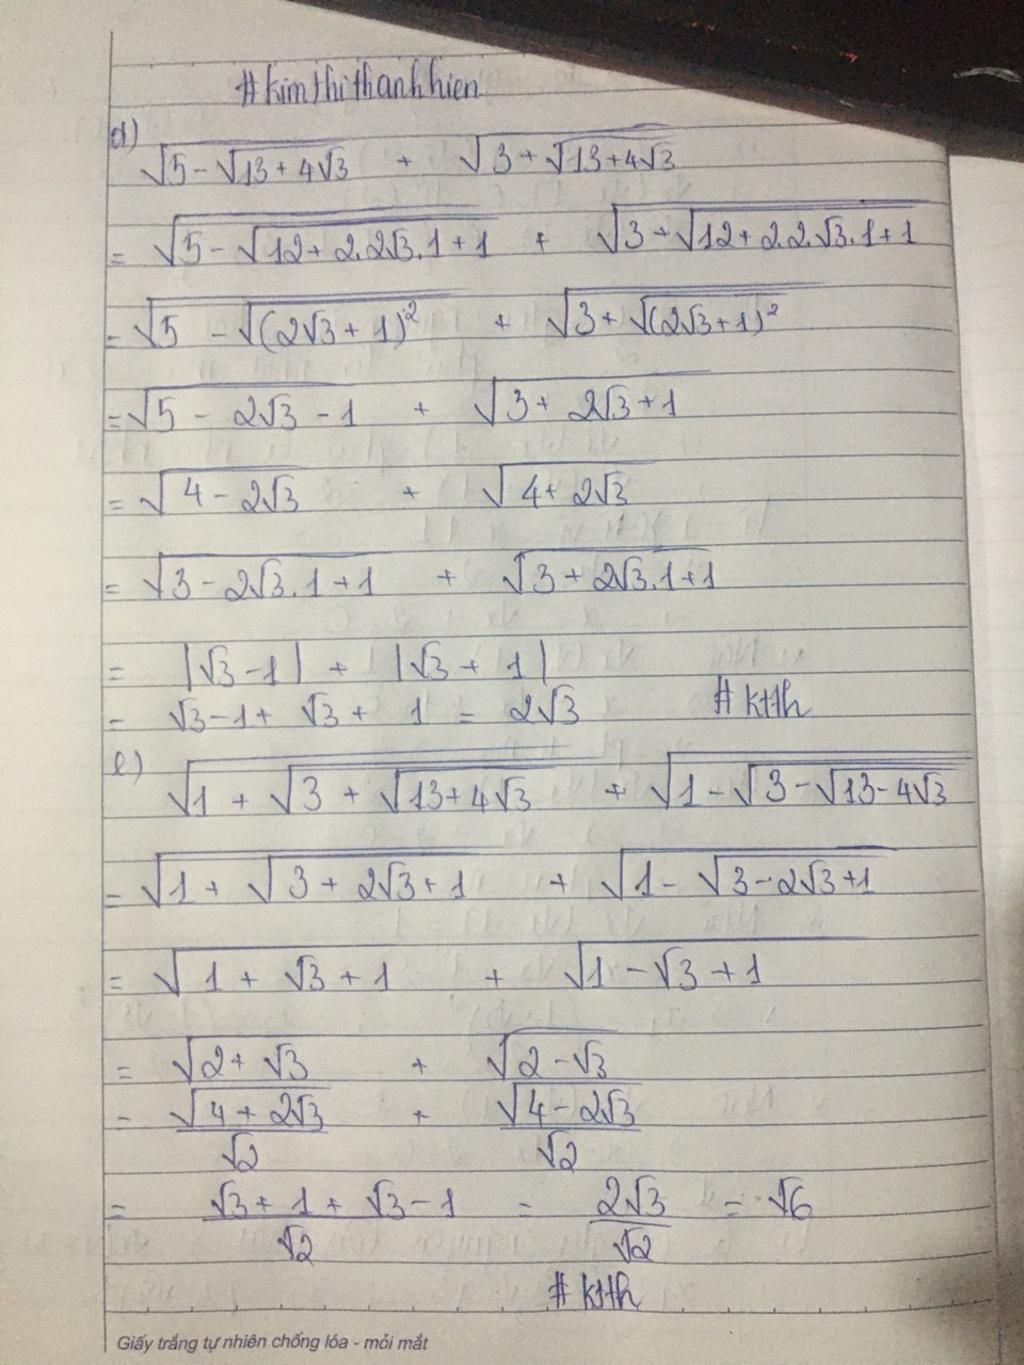 #kimthithanhhien
d)
√(5-√(13+4√3)) + √(3+√(13+4√3))
= √(5-√(12+2.2√3.1+1)) + √(3+√(12+2.2.√3.1+1))
= √(5 -√((2√3+1)²)) + √(3+√((2√3+1)²))
= √(5 - 2√3 - 1) + √(3 + 2√3+1)
= √(4-2√3) + √(4+2√3)
= √(3-2√3.1+1) + √(3+2√3.1+1)
= |√3-1| + |√3+1|
= √3-1+ √3+ 1 = 2√3 #ktth
e)
√(1 + √(3 + √(13+4√3))) + √(1-√(3-√(13-4√3)))
= √(1 + √(3+2√3+1)) + √(1- √(3-2√3+1))
= √(1 + √3+1) + √(1-√3+1)
= √(2+√3) + √(2-√3)
= √(4+2√3)/√2 + √(4-2√3)/√2
= (√3+1+√3-1)/√2 = 2√3/√2 = √6
#ktth
Giấy trắng tự nhiên chống lóa - mỏi mắt